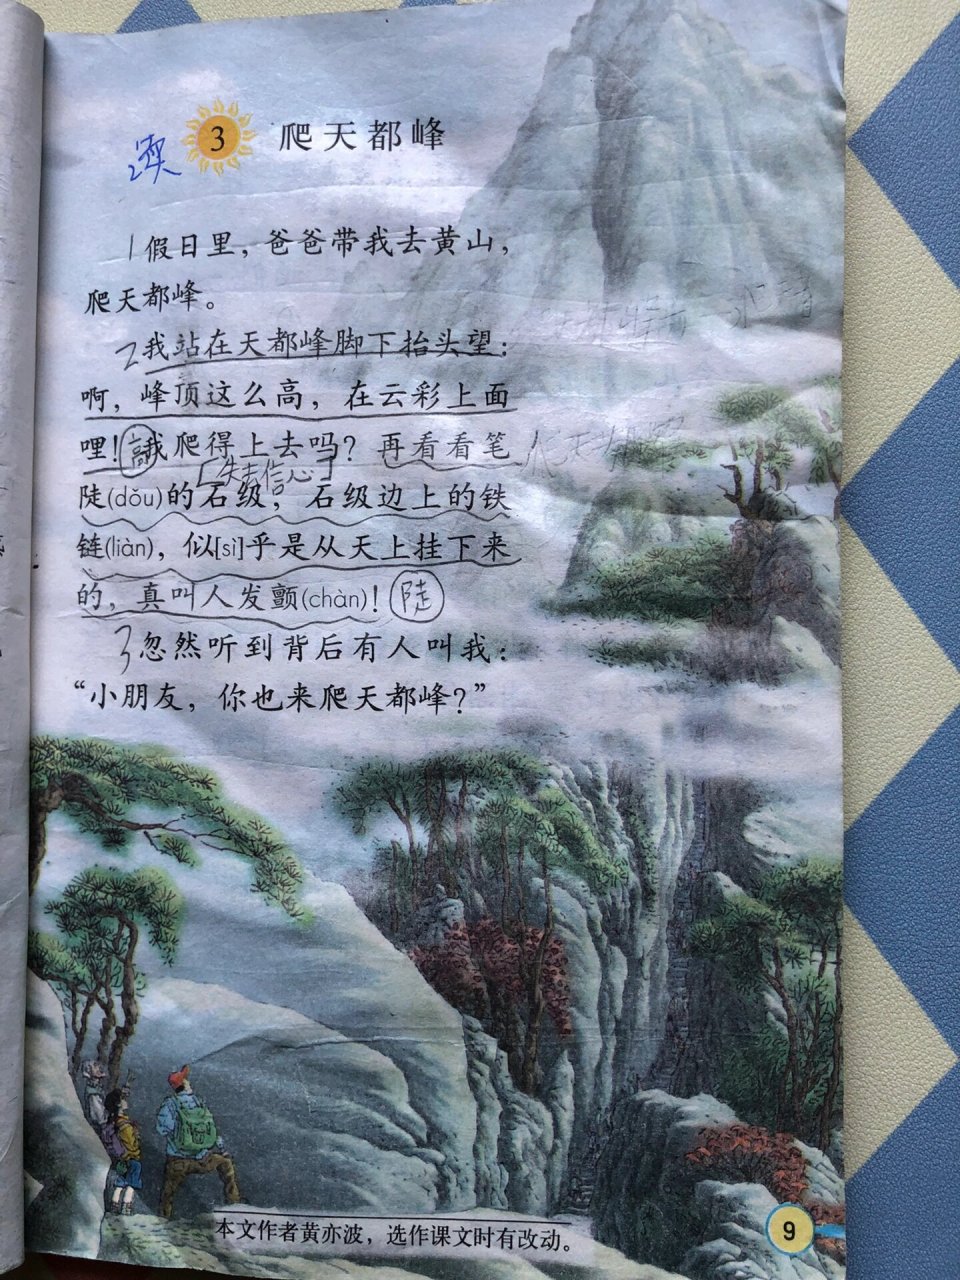 读
3 爬天都峰
1假日里，爸爸带我去黄山，
爬天都峰。
2我站在天都峰脚下抬头望：
啊，峰顶这么高，在云彩上面
哩！高我爬得上去吗？再看看笔
[失去信心]
陡(dǒu)的石级，石级边上的铁
链(liàn)，似[sì]乎是从天上挂下来
的，真叫人发颤(chàn)！陡
3忽然听到背后有人叫我：
“小朋友，你也来爬天都峰？”
本文作者黄亦波，选作课文时有改动。
9